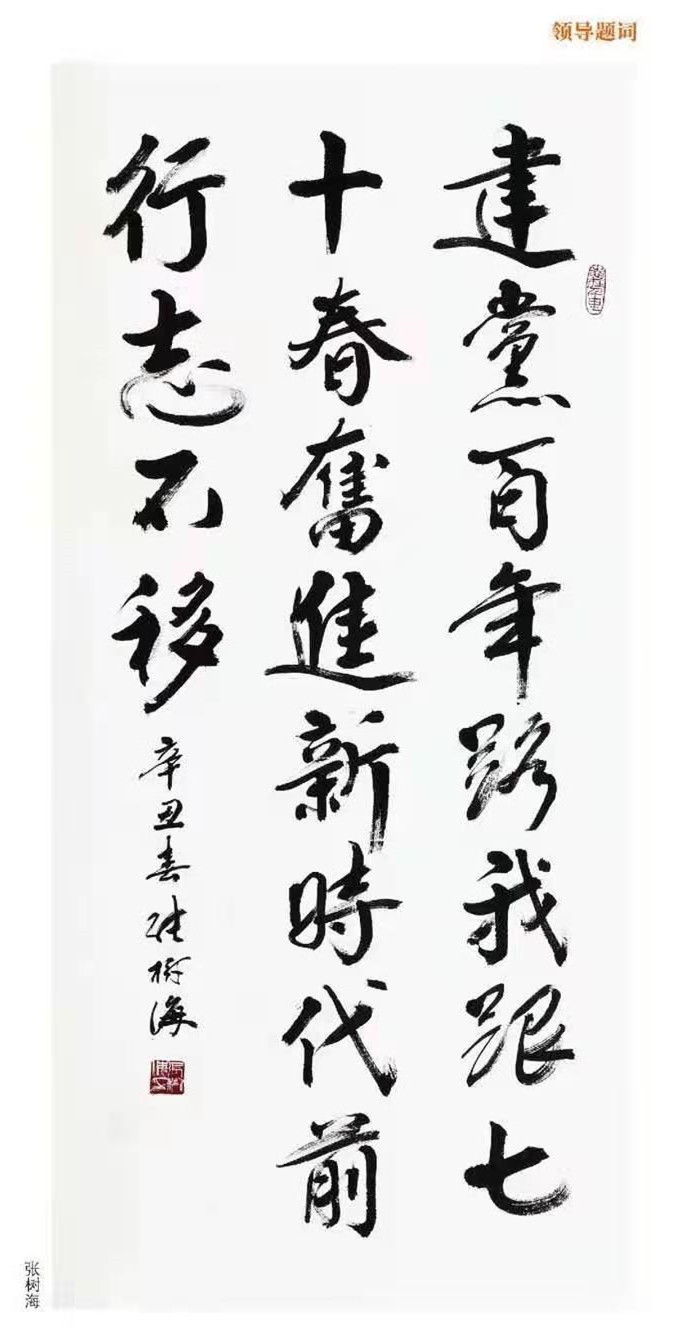 领导题词
建黨百年路我跟七
十春奮進新時代前
行志不移
辛丑春張樹海
张树海